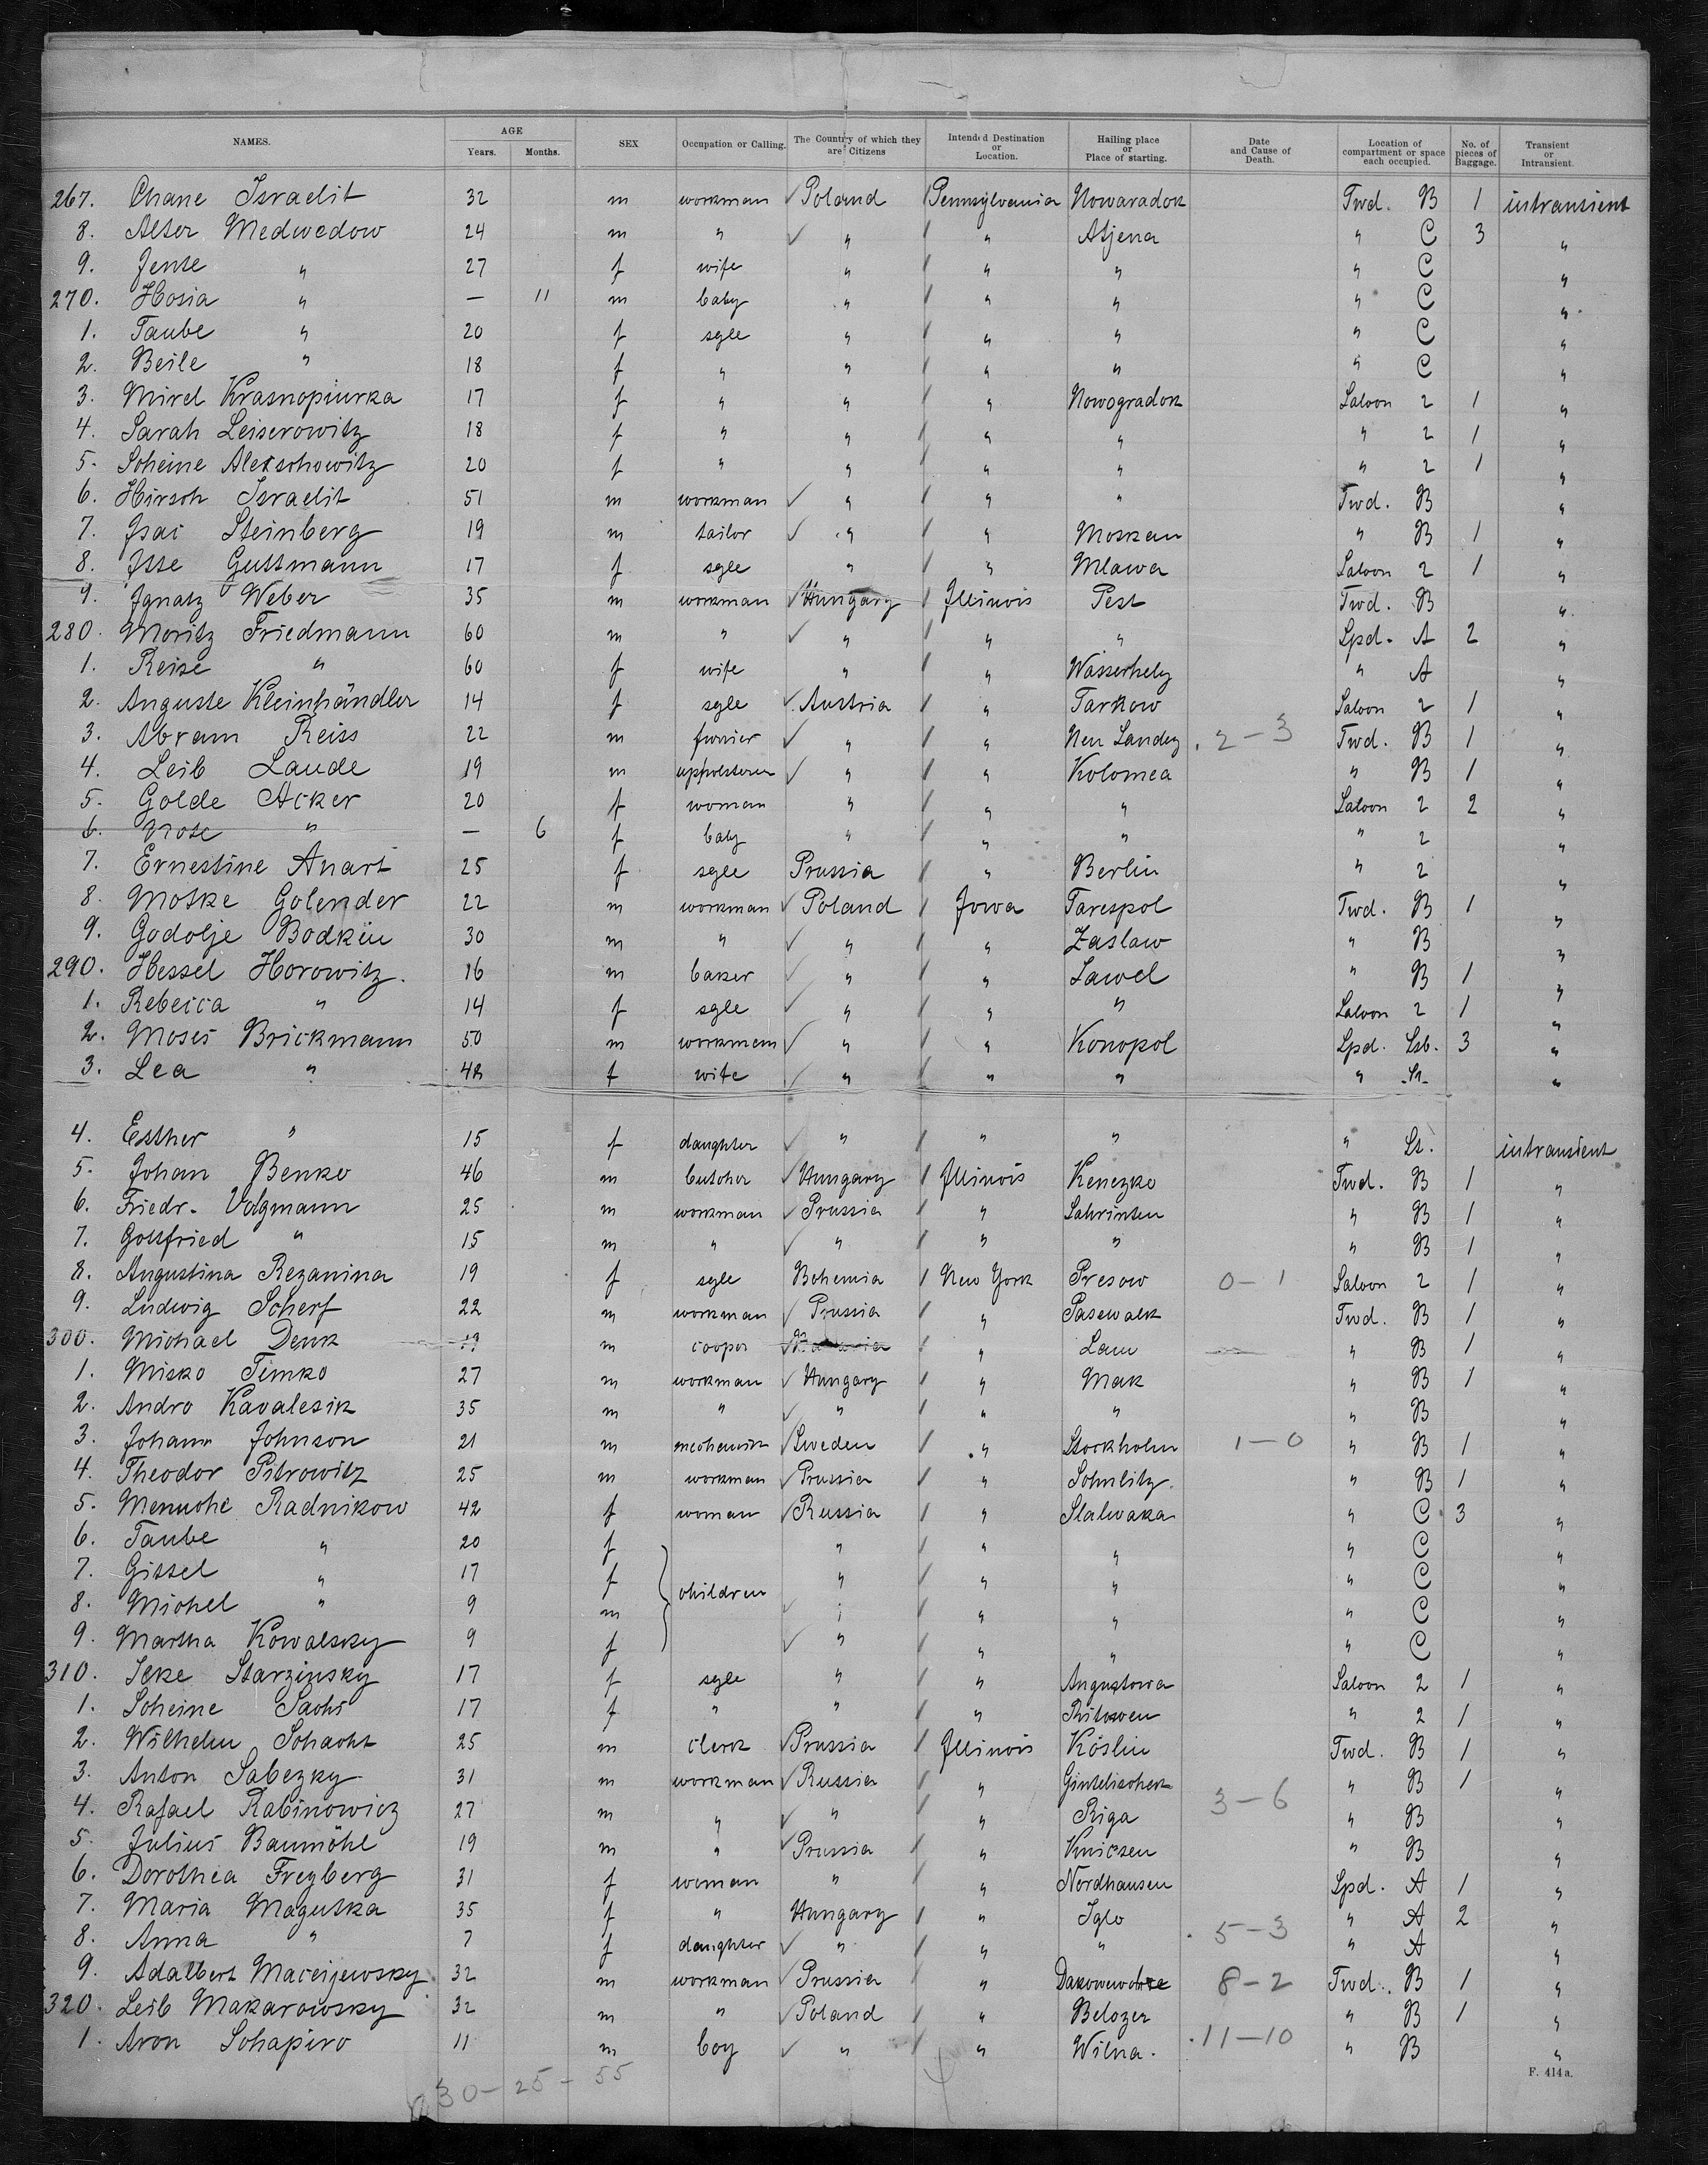 NAMES. AGE Years. Months. SEX Occupation or Calling. The Country of which they are Citizens Intended Destination or Location. Hailing place or Place of starting. Date and Cause of Death. Location of compartment or space each occupied. No. of pieces of Baggage. Transient or Intransient.
267. Chane Israelit 32 m workman ✓ Poland Pennsylvania Nowaradok Twd. B 1 intransient
8. Alter Medwedow 24 m " ✓ " / " Atjena " C 3 "
9. Jente " 27 f wife " / " " " C "
270. Hosia " — 11 m baby " / " " " C "
1. Taube " 20 f sgle " / " " " C "
2. Beile " 18 f " " / " " " C "
3. Mirel Krasnopiurka 17 f " " / " Nowogradok Saloon 2 1 "
4. Sarah Leiserowitz 18 f " " / " " " 2 1 "
5. Scheine Alekschowitz 20 f " " / " " " 2 1 "
6. Hirsch Israelit 51 m workman ✓ " / " " Twd. B "
7. Isai Steinberg 19 m tailor ✓ " / " Moskau " B 1 "
8. Itte Guttmann 17 f sgle " / " Mlawa Saloon 2 1 "
9. Ignatz Weber 35 m workman ✓ Hungary / Illinois Pest Twd. B "
280. Moritz Friedmann 60 m " ✓ " / " " Spd. A 2 "
1. Reise " 60 f wife " / " Wasserhely " A "
2. Auguste Kleinhändler 14 f sgle ✓ Austria / " Tarkow Saloon 2 1 "
3. Abram Reiss 22 m furrier ✓ " / " Neu Sandez 2-3 Twd. B 1 "
4. Leib Laude 19 m uppholsterer ✓ " / " Kolomea " B 1 "
5. Golde Acker 20 f woman " / " " Saloon 2 2 "
6. " — 6 f baby " / " " " 2 "
7. Ernestine Anart 25 f sgle Prussia / " Berlin " 2 "
8. Motke Golender 22 m workman ✓ Poland / Iowa Tarespol Twd. B 1 "
9. Godolje Bodkin 30 m " ✓ " / " Zaslaw " B "
290. Hessel Horowitz. 16 m baker ✓ " / " Sawel " B 1 "
1. Rebecca " 14 f sgle ✓ " / " " Saloon 2 1 "
2. Moses Brickmann 50 m workmen ✓ " / " Konopol Spd. Stb. 3 "
3. Lea " 48 f wife ✓ " / " " " St. "
4. Esther " 15 f daughter ✓ " / " " " St. intransient
5. Johan Benko 46 m butcher ✓ Hungary / Illinois Kenezko Twd. B 1 "
6. Friedr. Volgmann 25 m workman ✓ Prussia / " Sahrinten " B 1 "
7. Gottfried " 15 m " ✓ " / " " " B 1 "
8. Augustina Rezanina 19 f sgle Bohemia / New York Presow 0-1 Saloon 2 1 "
9. Ludwig Scherf 22 m workman ✓ Prussia / " Pasewalk Twd. B 1 "
300. Michael Denk 19 m cooper ✓ Bavaria / " Lam " B 1 "
1. Misko Timko 27 m workman ✓ Hungary / " Mak " B 1 "
2. Andro Kavalesik 35 m " ✓ " / " " " B "
3. Johann Johnson 21 m mechanik ✓ Sweden / " Stockholm 1-0 " B 1 "
4. Theodor Pitrowitz 25 m workman ✓ Prussia / " Schnlitz " B 1 "
5. Menuche Radnikow 42 f woman ✓ Russia / " Slalwaka " C 3 "
6. Taube " 20 f " / " " " C "
7. Gissel " 17 f children " / " " " C "
8. Michel " 9 m ✓ " / " " " C "
9. Martha Kowalsky 9 f ✓ " / " " " C "
310. Icke Starzinsky 17 f sgle " / " Augustowa Saloon 2 1 "
1. Scheine Sachs 17 f " " / " Ritowen " 2 1 "
2. Wilhelm Schacht 25 m clerk ✓ Prussia / Illinois Köslin Twd. B 1 "
3. Anton Sabezky 31 m workman ✓ Russia / " Gintelischek " B 1 "
4. Rafael Rabinowicz 27 m " ✓ " / " Riga 3-6 " B "
5. Julius Baumöhl 19 m " ✓ Prussia / " Kniesen " B "
6. Dorothea Freyberg 31 f woman " / " Nordhausen Spd. A 1 "
7. Maria Magutka 35 f " Hungary / " Iglo " A 2 "
8. Anna " 7 f daughter ✓ " / " " 5-3 " A "
9. Adalbert Maceijewsky 32 m workman ✓ Prussia / " 8-2 Twd. B 1 "
320. Leib Makarowsky 32 m " ✓ Poland / " Belozer " B 1 "
1. Aron Schapiro 11 m boy ✓ " / " Wilna. 11-10 " B "
30-25-55
F. 414a.